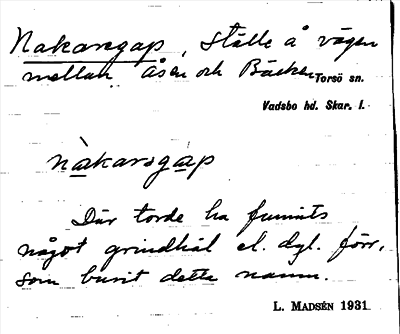 Nakaregap, ställe å vägen
mellan Åsen och Bäcken Torsö sn.
Vadsbo hd. Skar. l.
nàkarsgáp
Där torde ha funnits
något grindhål el. dyl. förr,
som burit detta namn.
L. MADSÉN 1931